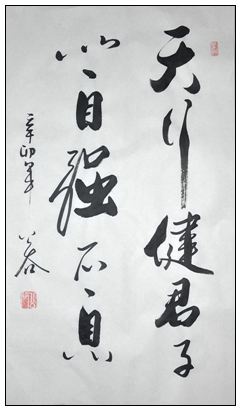 天行健君子
以自强不息
辛卯年